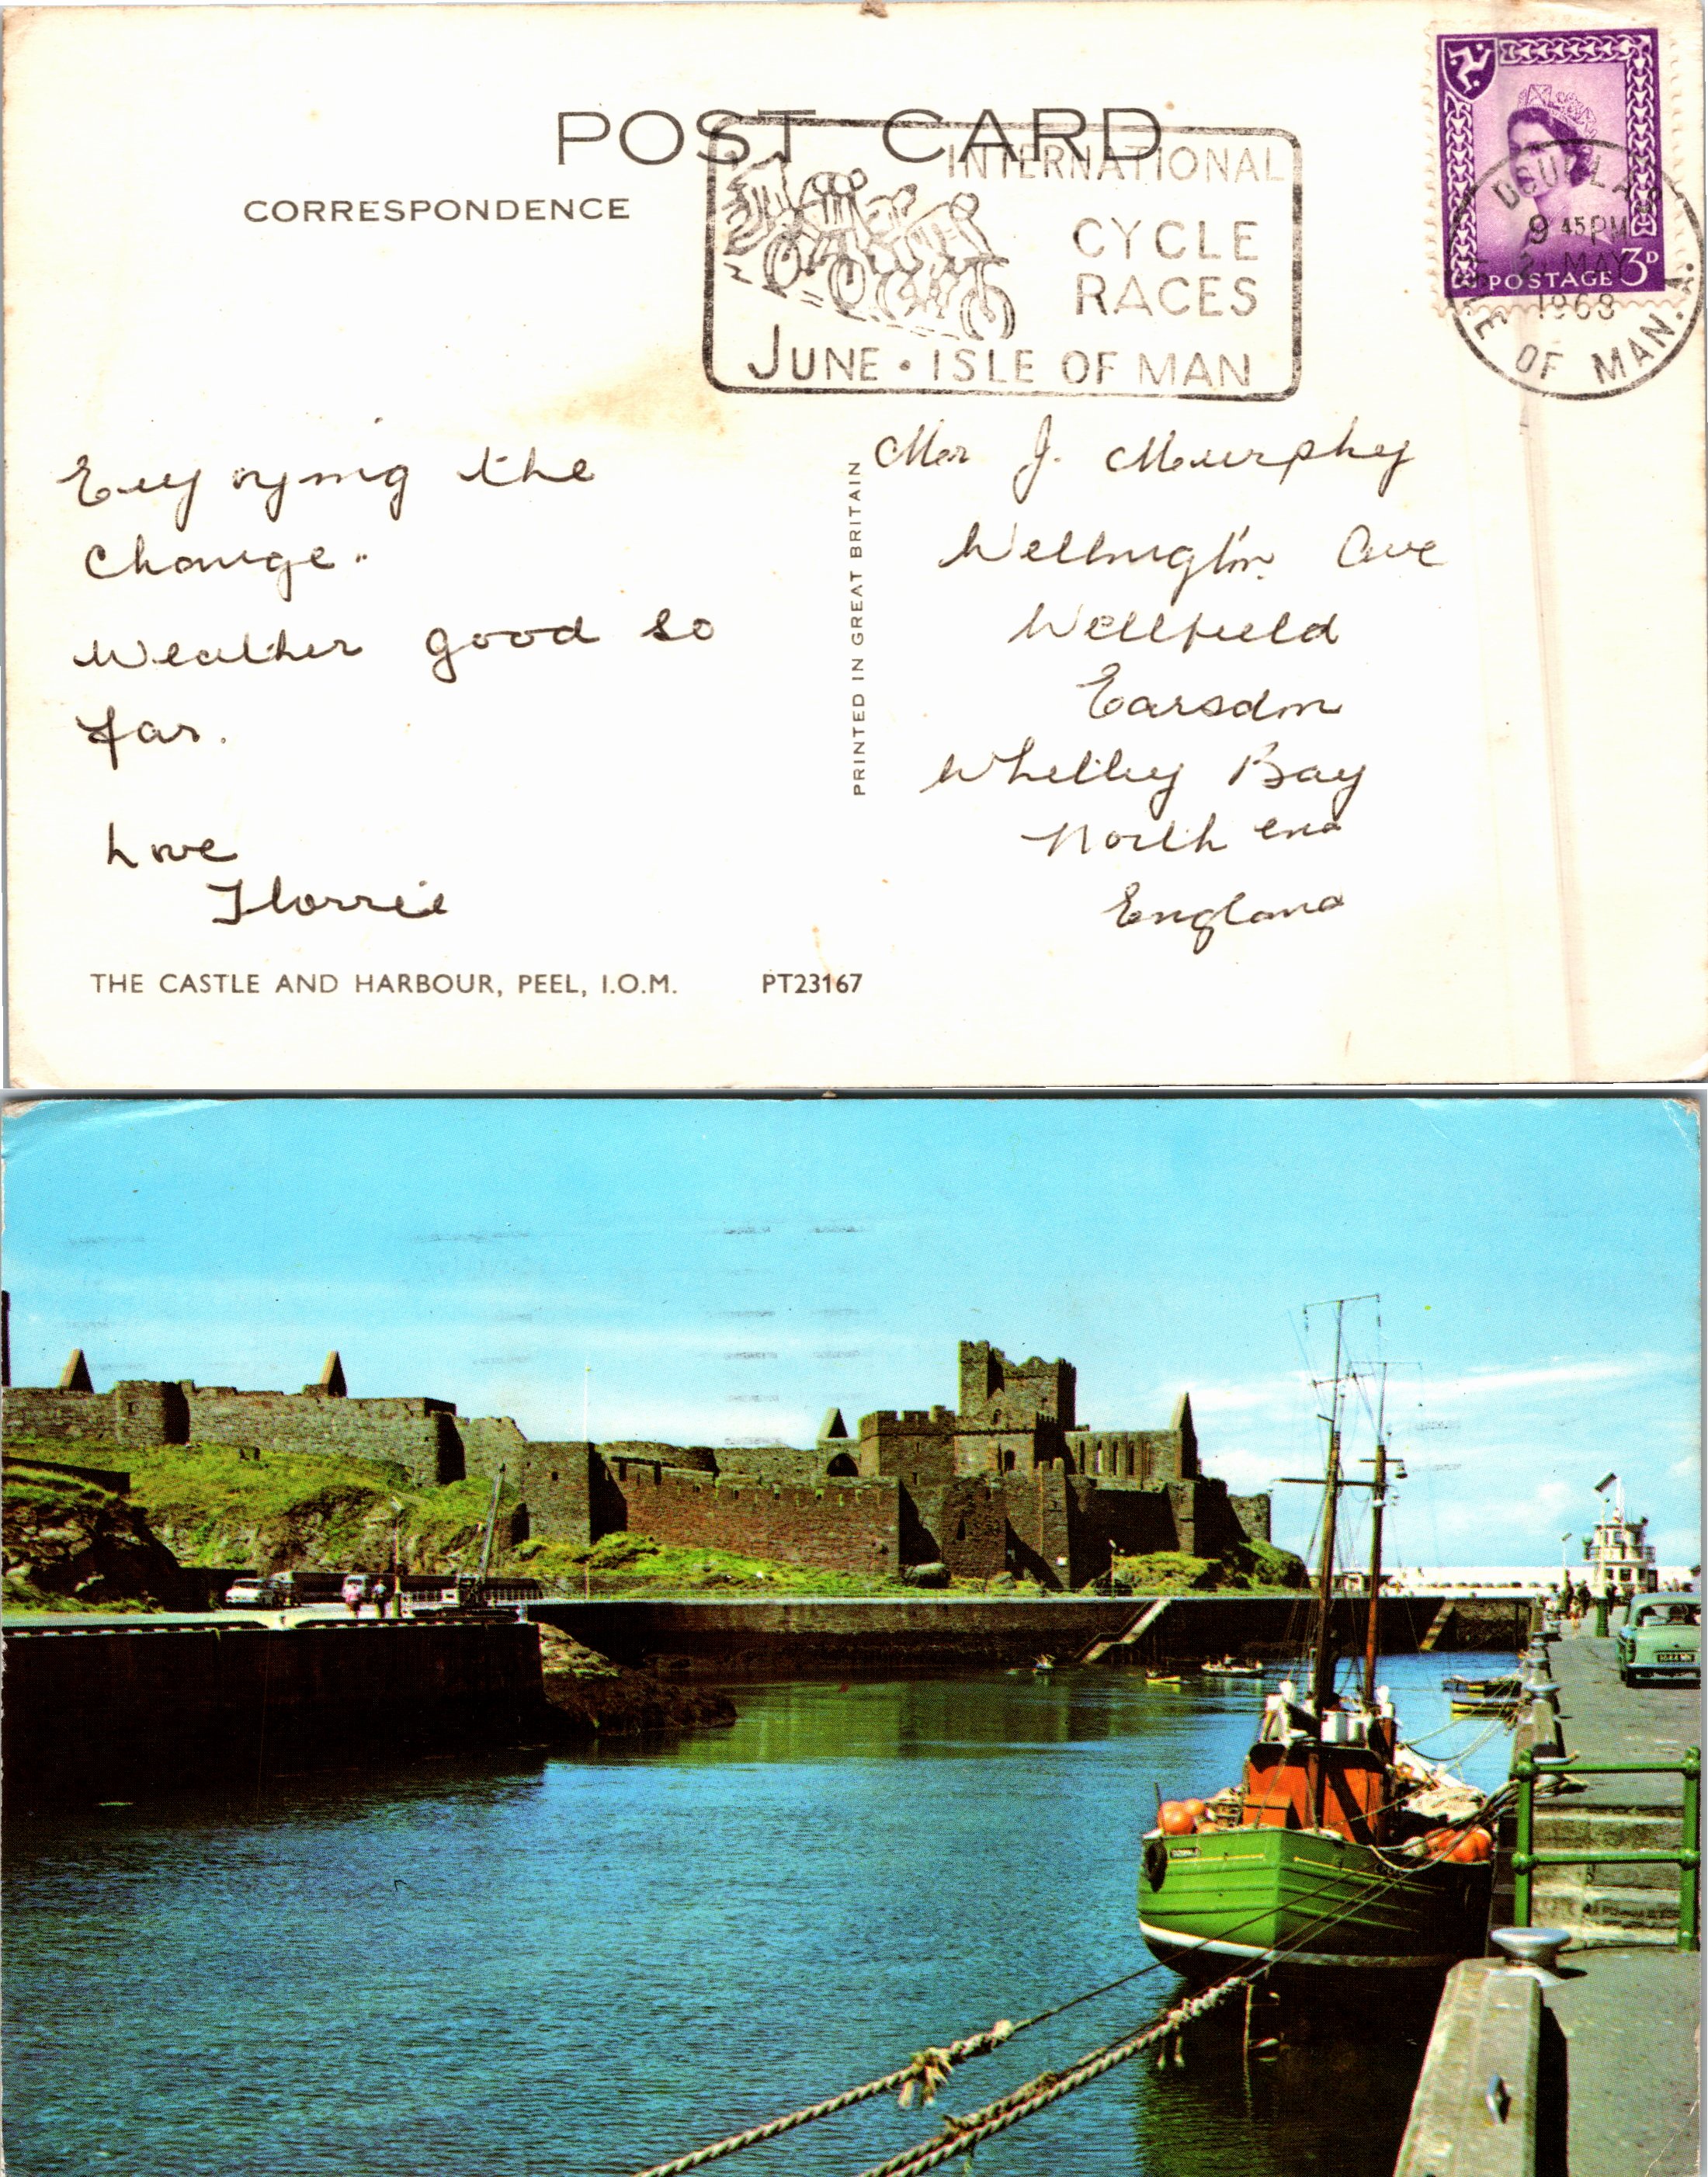 POST CARD
CORRESPONDENCE
INTERNATIONAL
CYCLE
RACES
JUNE • ISLE OF MAN
DOUGLAS
9 45 PM
MAY
1968
ISLE OF MAN.
POSTAGE 3D
Enjoying the
change..
Weather good so
far.
Love
Florrie
PRINTED IN GREAT BRITAIN
Mr J. Murphy
Wellington Ave
Wellfield
Earsdon
Whitley Bay
North end
England
THE CASTLE AND HARBOUR, PEEL, I.O.M. PT23167